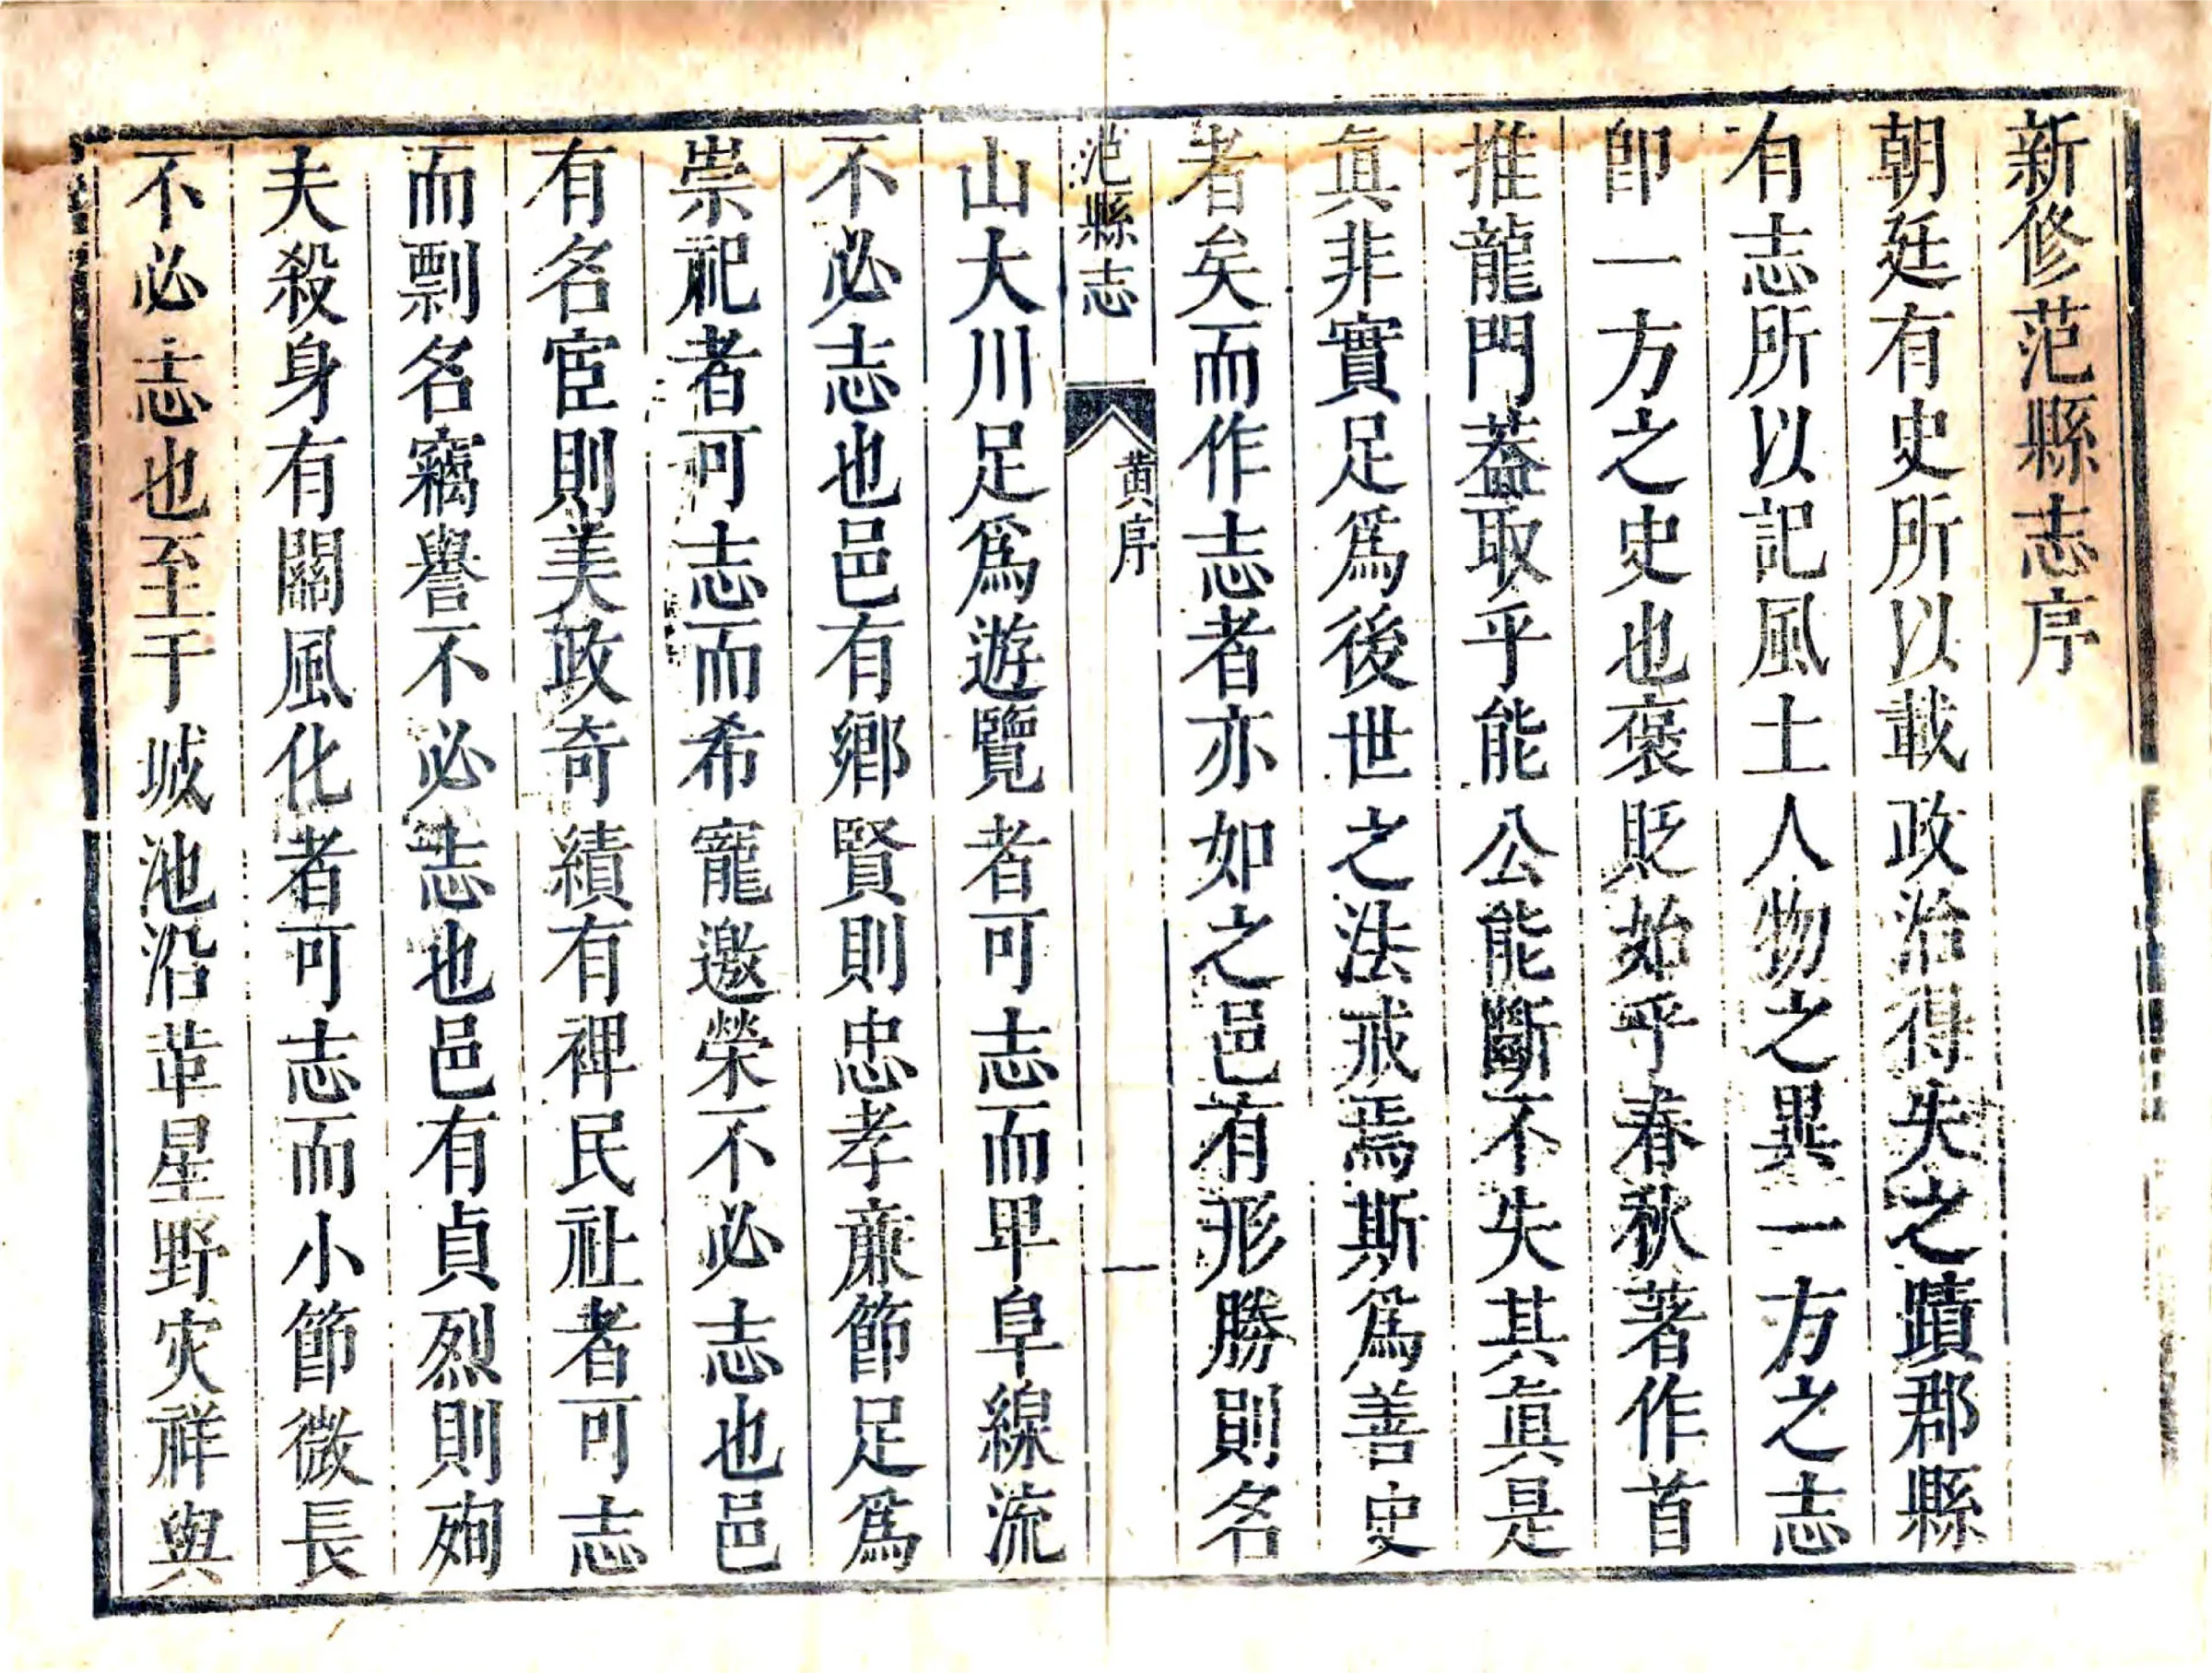 新修范縣志序
朝廷有史所以載政治得失之蹟郡縣
有志所以記風土人物之異一方之志
卽一方之史也褒貶始乎春秋著作首
推龍門葢取乎能公能斷不失其眞是
眞非實足爲後世之法戒焉斯爲善史
者矣而作志者亦如之邑有形勝則名
范縣志
黃序
一
山大川足爲遊覽者可志而卑阜線流
不必志也邑有鄉賢則忠孝亷節足爲
崇祀者可志而希寵邀榮不必志也邑
有名宦則美政奇績有裨民社者可志
而剽名竊譽不必志也邑有貞烈則殉
夫殺身有關風化者可志而小節微長
不必志也至于城池沿革星野灾祥與